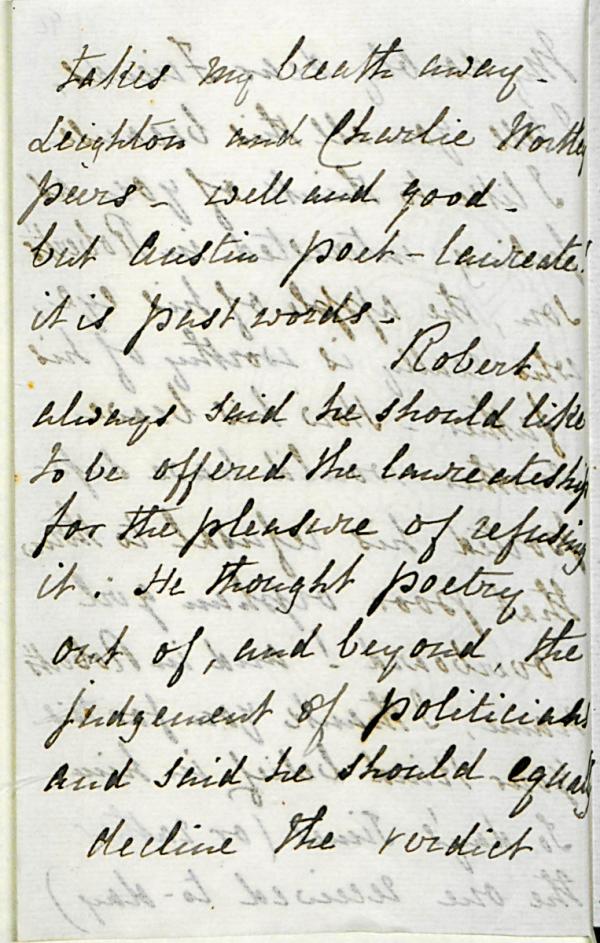 takes my breath away -
Leighton and Charlie Wortley
peers - well and good -
but Austin poet-laureate!
it is past words -
Robert
always said he should like
to be offered the laureateship
for the pleasure of refusing
it. He thought poetry
out of, and beyond, the
judgement of politicians
and said he should equally
decline the verdict